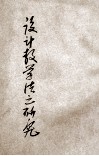 设计教学法之研究